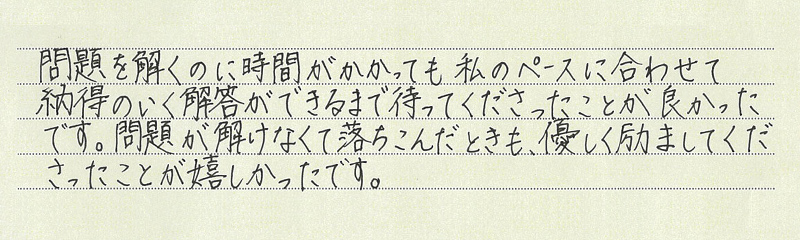 問題を解くのに時間がかかっても私のペースに合わせて
納得のいく解答ができるまで待ってくださったことが良かった
です。問題が解けなくて落ちこんだときも、優しく励ましてくだ
さったことが嬉しかったです。